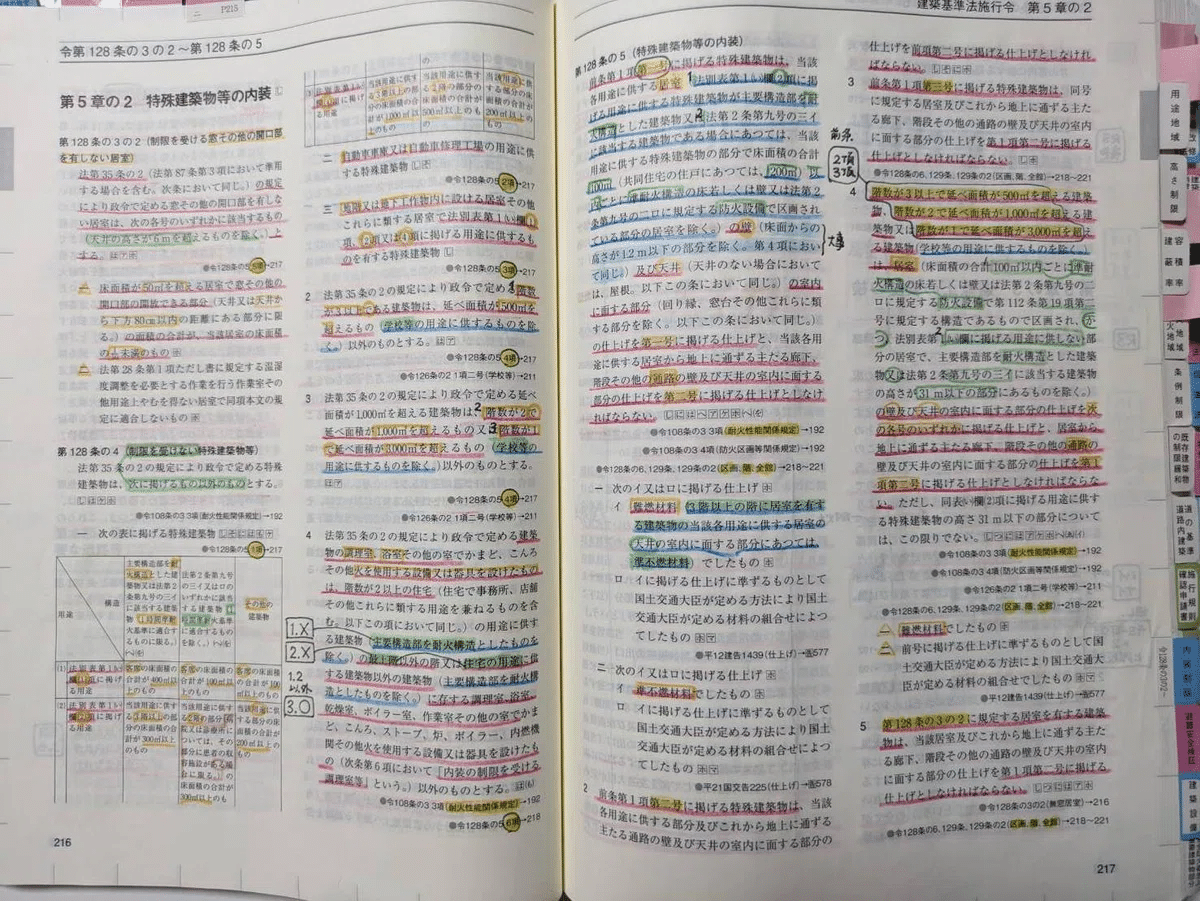 ニ P215
令第128条の3の2〜第128条の5
第5章の2 特殊建築物等の内装
第128条の3の2(制限を受ける窓その他の開口部
を有しない居室)
法第35条の2(法第87条第3項において準用
する場合を含む。次条において同じ。)の規定
により政令で定める窓その他の開口部を有しな
い居室は、次の各号のいずれかに該当するもの
(天井の高さが6mを超えるものを除く。)と
する。
●令128条の5 5項→217
一 床面積が50㎡を超える居室で窓その他の
開口部の開放できる部分(天井又は天井か
ら下方80cm以内の距離にある部分に限
る。)の面積の合計が、当該居室の床面積
の1/50未満のもの
二 法第28条第1項ただし書に規定する温湿
度調整を必要とする作業を行う作業室その
他用途上やむを得ない居室で同項本文の規
定に適合しないもの
第128条の4(制限を受けない特殊建築物等)
法第35条の2の規定により政令で定める特殊
建築物は、次に掲げるもの以外のものとする。
●令108条の3 3項(耐火性能関係規定)→192
一 次の表に掲げる特殊建築物
●令128条の5 1項→217
構造
用途
主要構造部を耐
火構造とした建
築物又は法第2
条第九号の三イ
に該当する建築
物(1時間準耐
火基準に適合す
るものに限る。)
法第2条第九号
の三イ又はロの
いずれかに該当
する建築物(1
時間準耐火基準
に適合するもの
を除く。)
その他の
建築物
(1) 法別表第1(い)
欄(1)項に掲げ
る用途
客席の床面積の
合計が400㎡以
上のもの
客席の床面積の
合計が100㎡以
上のもの
客席の床面積の
合計が100㎡以
上のもの
(2) 法別表第1(い)
欄(2)項に掲げ
る用途
当該用途に供す
る3階以上の部
分の床面積の合
計が300㎡以上
のもの
当該用途に供す
る2階の部分(病
院又は診療所に
ついては、その
部分に患者の収
容施設がある場
合に限る。)の
床面積の合計が
300㎡以上のも
の
当該用途に供す
る部分の床面積
の合計が
200㎡以上のも
の
216
の
(3) 法別表第1(い)
欄(4)項に掲げ
る用途
当該用途に供す
る3階以上の部分
の床面積の合計
が1,000㎡以上
のもの
当該用途に供す
る2階の部分の
床面積の合計が
500㎡以上のもの
当該用途に供す
る部分の床面積
の合計が
200㎡以上のもの
二 自動車車庫又は自動車修理工場の用途に供
する特殊建築物
●令128条の5 2項→217
三 地階又は地下工作物内に設ける居室その他
これらに類する居室で法別表第1(い)欄(1)
項、(2)項又は(4)項に掲げる用途に供するも
のを有する特殊建築物
●令128条の5 3項→217
2 法第35条の2の規定により政令で定める階数
が3以上である建築物は、延べ面積が500㎡を
超えるもの(学校等の用途に供するものを除
く。)以外のものとする。
●令128条の5 4項→217
●令126条の2 1項二号(学校等)→211
3 法第35条の2の規定により政令で定める延べ
面積が1,000㎡を超える建築物は、階数が2で
延べ面積が1,000㎡を超えるもの又は階数が1
で延べ面積が3,000㎡を超えるもの(学校等の
用途に供するものを除く。)以外のものとする。
●令128条の5 4項→217
●令126条の2 1項二号(学校等)→211
4 法第35条の2の規定により政令で定める建築
物の調理室、浴室その他の室でかまど、こんろ
その他火を使用する設備又は器具を設けたもの
は、階数が2以上の住宅(住宅で事務所、店舗
その他これらに類する用途を兼ねるものを含
む。以下この項において同じ。)の用途に供す
る建築物(主要構造部を耐火構造としたものを
除く。)の最上階以外の階又は住宅の用途に供
する建築物以外の建築物(主要構造部を耐火構
造としたものを除く。)に存する調理室、浴室、
乾燥室、ボイラー室、作業室その他の室でかま
ど、こんろ、ストーブ、炉、ボイラー、内燃機
関その他火を使用する設備又は器具を設けたも
の(次条第6項において「内装の制限を受ける
調理室等」という。)以外のものとする。
●令108条の3 3項(耐火性能関係規定)→192
●令128条の5 6項→218
1.X
2.X
1.2
以外
3.O
建築基準法施行令 第5章の2
第128条の5(特殊建築物等の内装)
前条第1項第一号に掲げる特殊建築物は、当該
各用途に供する居室(法別表第1(い)欄(2)項に掲
げる用途に供する特殊建築物が主要構造部を耐
火構造とした建築物又は法第2条第九号の三イ
に該当する建築物である場合にあつては、当該
用途に供する特殊建築物の部分で床面積の合計
100㎡(共同住宅の住戸にあつては、200㎡)以
内ごとに準耐火構造の床若しくは壁又は法第2
条第九号の二ロに規定する防火設備で区画され
ている部分の居室を除く。)の壁(床面からの
高さが1.2m以下の部分を除く。第4項におい
て同じ。)及び天井(天井のない場合において
は、屋根。以下この条において同じ。)の室内
に面する部分(回り縁、窓台その他これらに類
する部分を除く。以下この条において同じ。)
の仕上げを第一号に掲げる仕上げと、当該各用
途に供する居室から地上に通ずる主たる廊下、
階段その他の通路の壁及び天井の室内に面する
部分の仕上げを第二号に掲げる仕上げとしなけ
ればならない。
●令108条の3 3項(耐火性能関係規定)→192
●令108条の3 4項(防火区画等関係規定)→192
●令128条の6、129条、129条の2(区画、階、全館)→218〜221
一 次のイ又はロに掲げる仕上げ
イ 難燃材料(3階以上の階に居室を有す
る建築物の当該各用途に供する居室の
天井の室内に面する部分にあつては、
準不燃材料)でしたもの
ロ イに掲げる仕上げに準ずるものとして
国土交通大臣が定める方法により国土
交通大臣が定める材料の組合せによつ
てしたもの
●平12建告1439(仕上げ)→告577
二 次のイ又はロに掲げる仕上げ
イ 準不燃材料でしたもの
ロ イに掲げる仕上げに準ずるものとして
国土交通大臣が定める方法により国土
交通大臣が定める材料の組合せによつ
てしたもの
●平21国交告225(仕上げ)→告578
2 前条第1項第二号に掲げる特殊建築物は、当該
各用途に供する部分及びこれから地上に通ずる
主たる通路の壁及び天井の室内に面する部分の
前条
2項
3項
大事
仕上げを前項第二号に掲げる仕上げとしなけれ
ばならない。
3 前条第1項第三号に掲げる特殊建築物は、同号
に規定する居室及びこれから地上に通ずる主た
る廊下、階段その他の通路の壁及び天井の室内
に面する部分の仕上げを第1項第二号に掲げる
仕上げとしなければならない。
●令128条の6、129条、129条の2(区画、階、全館)→218〜221
4 階数が3以上で延べ面積が500㎡を超える建築
物、階数が2で延べ面積が1,000㎡を超える建
築物又は階数が1で延べ面積が3,000㎡を超え
る建築物(学校等の用途に供するものを除く。)
は、居室(床面積の合計100㎡以内ごとに準耐
火構造の床若しくは壁又は法第2条第九号の二
ロに規定する防火設備で第112条第19項第二
号に規定する構造であるもので区画され、か
つ、法別表第1(い)欄に掲げる用途に供しない部
分の居室で、主要構造部を耐火構造とした建築
物又は法第2条第九号の三イに該当する建築物
の高さが31m以下の部分にあるものを除く。)
の壁及び天井の室内に面する部分の仕上げを次
の各号のいずれかに掲げる仕上げと、居室から
地上に通ずる主たる廊下、階段その他の通路の
壁及び天井の室内に面する部分の仕上げを第1
項第二号に掲げる仕上げとしなければならな
い。ただし、同表(い)欄(2)項に掲げる用途に供す
る特殊建築物の高さ31m以下の部分について
は、この限りでない。
●令108条の3 3項(耐火性能関係規定)→192
●令108条の3 4項(防火区画等関係規定)→192
●令126条の2 1項二号(学校等)→211
●令128条の6、129条、129条の2(区画、階、全館)→218〜221
一 難燃材料でしたもの
二 前号に掲げる仕上げに準ずるものとして国
土交通大臣が定める方法により国土交通大
臣が定める材料の組合せでしたもの
●平12建告1439(仕上げ)→告577
5 第128条の3の2に規定する居室を有する建築
物は、当該居室及びこれから地上に通ずる主た
る廊下、階段その他の通路の壁及び天井の室内
に面する部分の仕上げを第1項第二号に掲げる
仕上げとしなければならない。
●令128条の3の2(無窓居室)→216
●令128条の6、129条、129条の2(区画、階、全館)→218〜221
217
用途地域
高さ制限
容積率
建蔽率
条例制限
既存建築物
の制限緩和
道の基
道路内建築
施行規則
確認申請書
内装制限
避難安全検証
建築設備
令128条の3の2〜